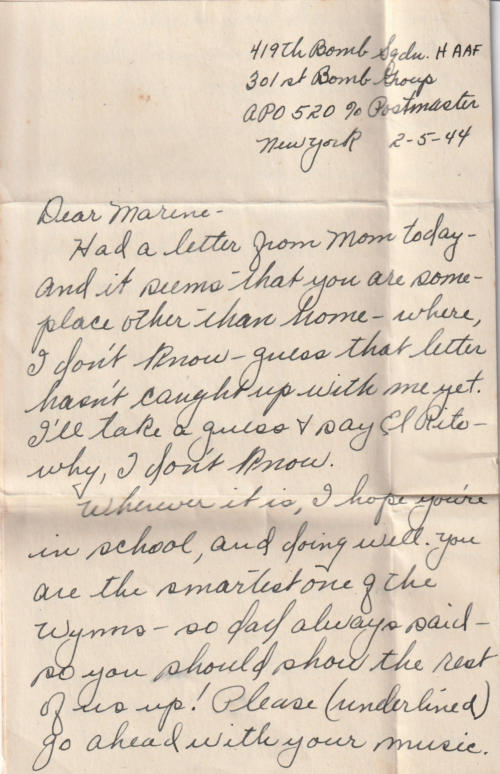 419th Bomb Sqdn. H AAF
301st Bomb Group
APO 520 % Postmaster
New York 2-5-44
Dear Marine-
Had a letter from Mom today-
and it seems that you are some-
place other than home- where,
I don't know- guess that letter
hasn't caught up with me yet.
I'll take a guess & say El Rito-
why, I don't know.
Wherever it is, I hope you're
in school, and doing well. You
are the smartest one of the
Wynns- so dad always said-
so you should show the rest
of us up! Please (underlined)
go ahead with your music.